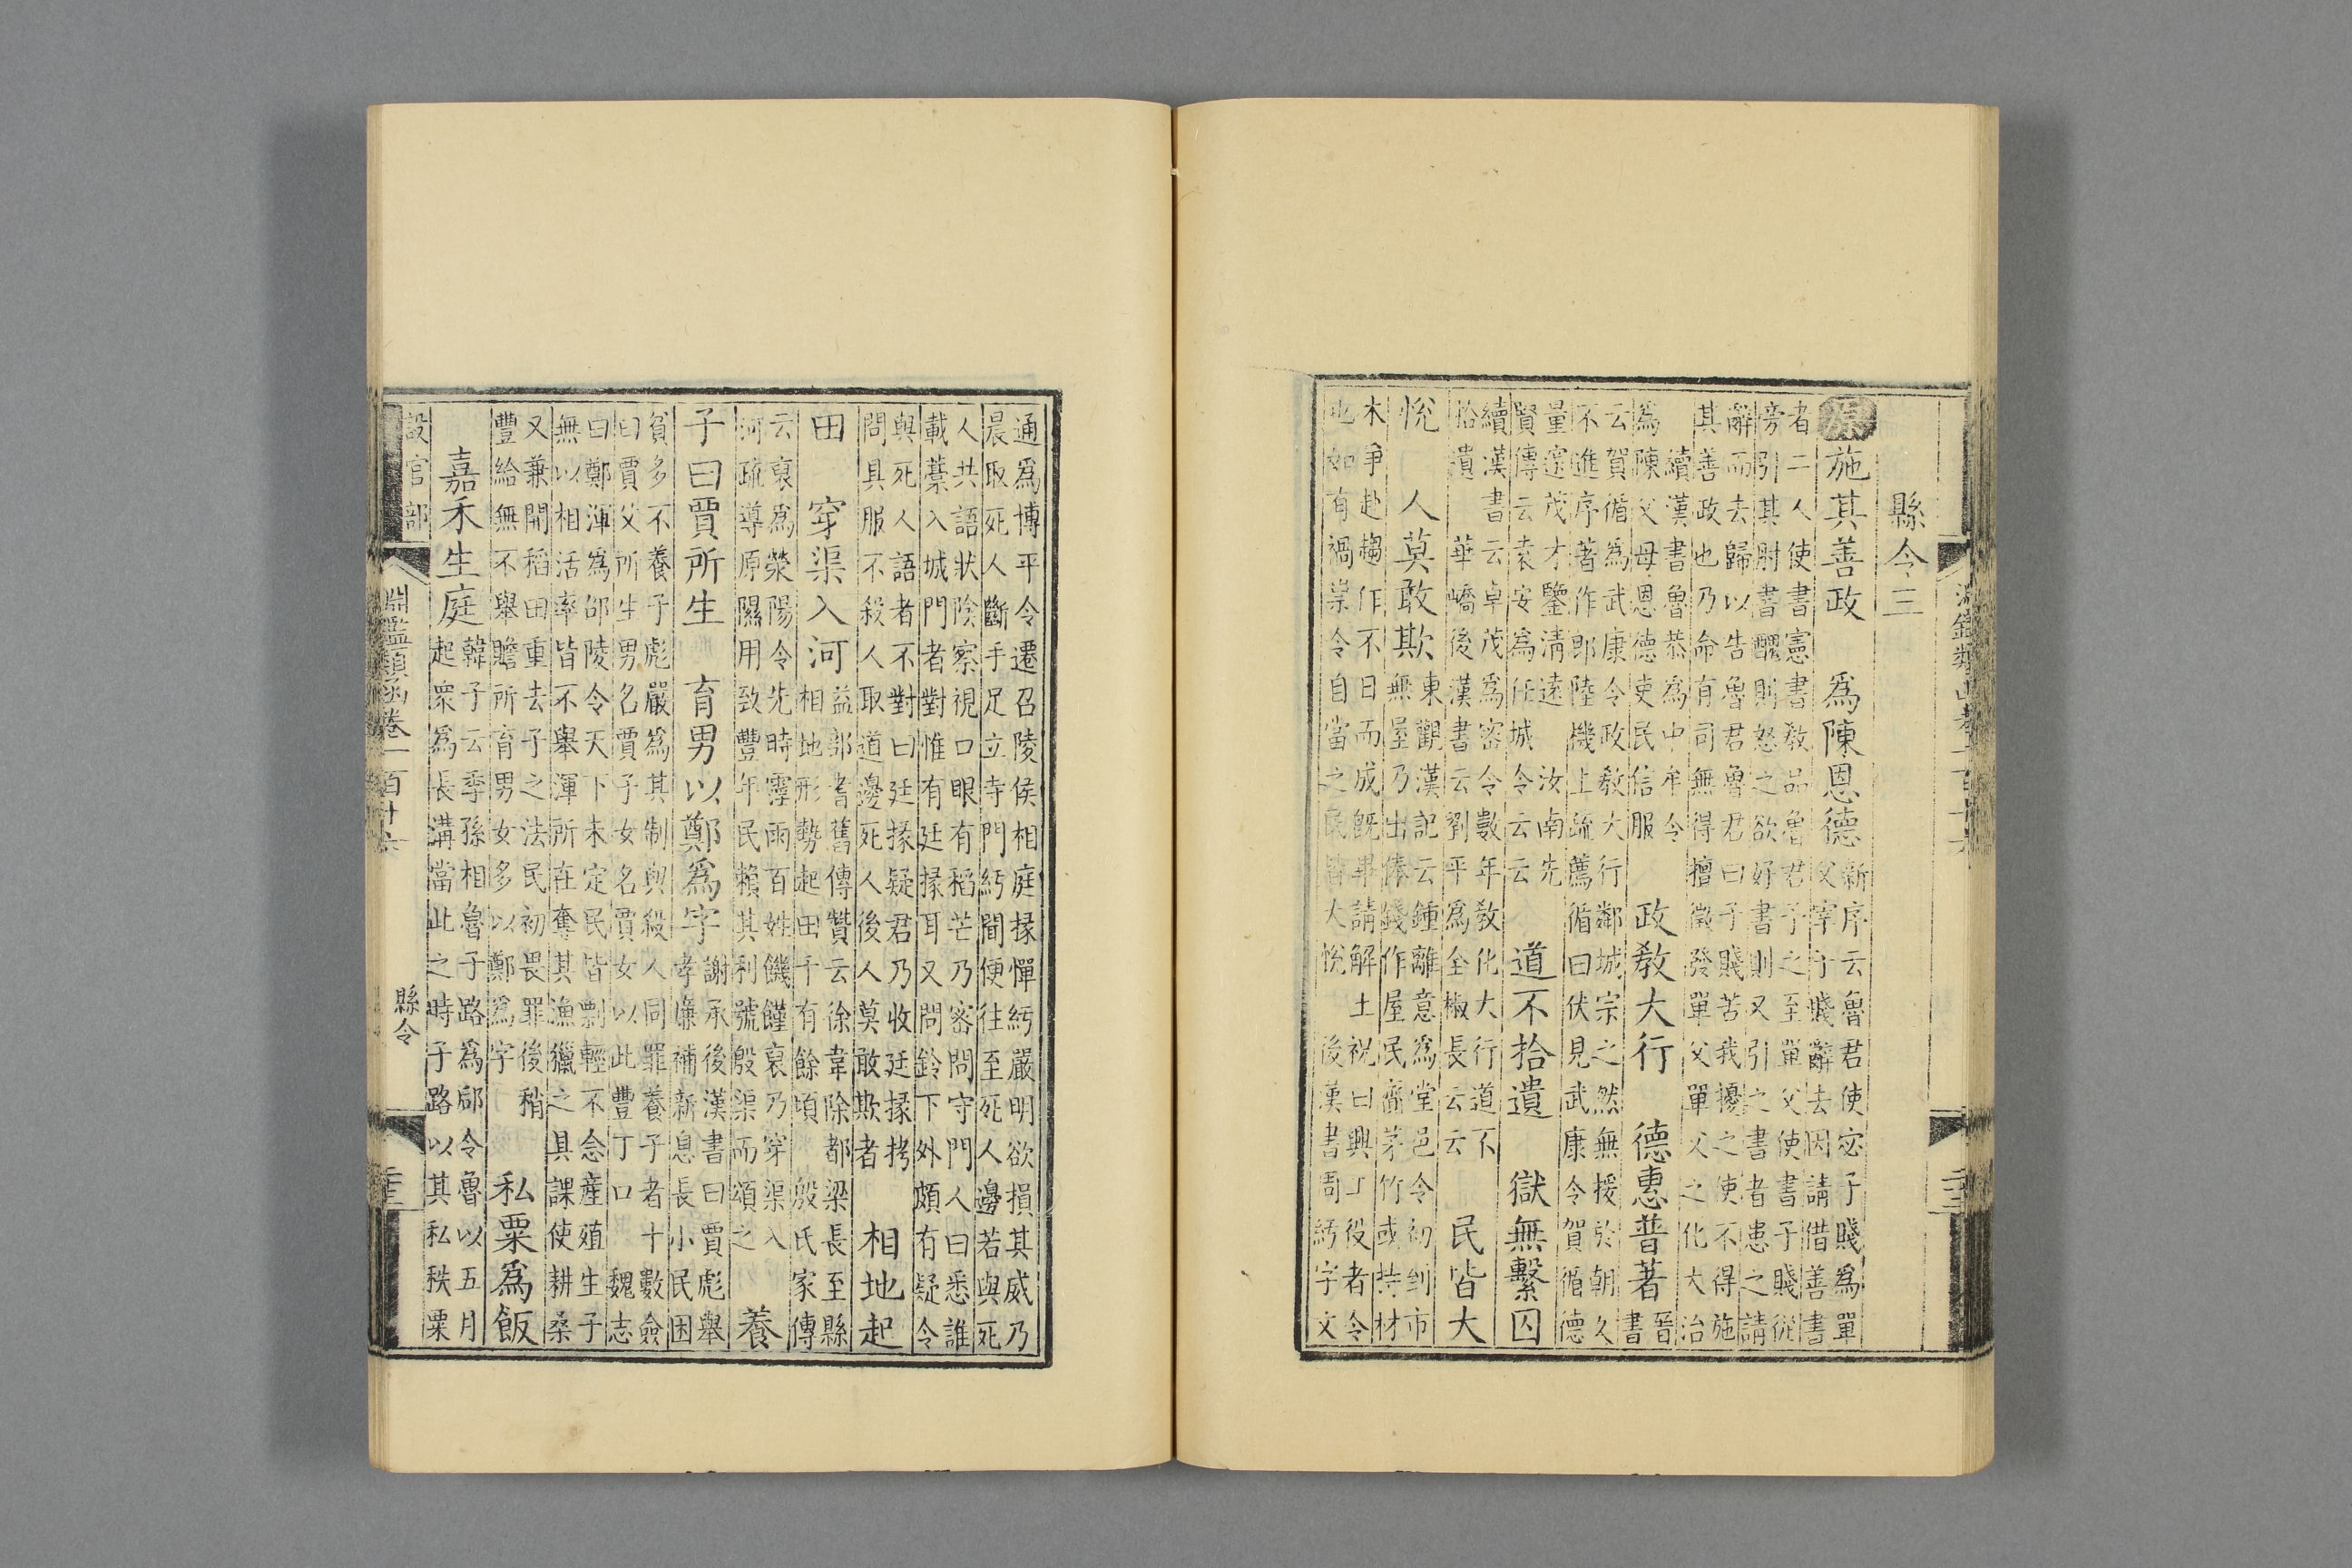 淵鑑類函卷一百十六
二十三
縣令三
原施其善政　爲陳恩德
新序云魯君使宓子賤爲單
父宰子賤辭去因請借善書
者二人使書憲書教品魯君予之至單父使書子賤從
旁引其肘書醜則怒之欲好書則又引之書者患之請
辭而去歸以告魯君魯君曰子賤苦我擾之使不得施
其善政也乃命有司無得擅徵發單父單父之化大治
續漢書魯恭爲中牟令
爲陳父母恩德吏民信服
政教大行　德惠普著
晉
書
云賀循爲武康令政教大行鄰城宗之然無援於朝久
不進序著作郎陸機上疏薦循曰伏見武康令賀循德
量邃茂才鑒清遠　汝南先
賢傳云袁安爲任城令云云
道不拾遺　獄無繫囚
續漢書云卓茂爲密令數年教化大行道不
拾遺　華嶠後漢書云劉平爲全椒長云云
民皆大
悅　人莫敢欺
東觀漢記云鍾離意爲堂邑令初到市
無屋乃出俸錢作屋民齎茅竹或持材
木爭赴趨作不日而成旣畢請解土祝曰興工役者令
也如有禍祟令自當之民皆大悅　後漢書周紆字文
通爲博平令遷召陵侯相庭掾憚紆嚴明欲損其威乃
晨取死人斷手足立寺門紆聞便往至死人邊若與死
人共語狀陰察視口眼有稻芒乃密問守門人曰悉誰
載藁入城門者對惟有廷掾耳又問鈴下外頗有疑令
與死人語者不對曰廷掾疑君乃收廷掾拷
問具服不殺人取道邊死人後人莫敢欺者
相地起
田　穿渠入河
益部耆舊傳贊云徐韋除都梁長至縣
相地形勢起田千有餘頃　殷氏家傳
云裒爲滎陽令先時霪雨百姓饑饉裒乃穿渠入
河疏導原隰用致豐年民賴其利號殷渠而頌之
養
子曰賈所生　育男以鄭爲字
謝承後漢書曰賈彪舉
孝廉補新息長小民困
貧多不養子彪嚴爲其制與殺人同罪養子者十數僉
曰賈父所生男名賈子女名賈女以此豐丁口　魏志
曰鄭渾爲邵陵令天下未定民皆剽輕不念產殖生子
無以相活率皆不舉渾所在奪其漁獵之具課使耕桑
又兼開稻田重去子之法民初畏罪後稍
豐給無不舉贍所育男女多以鄭爲字
私粟爲飯
嘉禾生庭
韓子云季孫相魯子路爲郈令魯以五月
起衆爲長溝當此之時子路以其私秩粟
設官部
淵鑑類函卷一百十六
縣令
二十三